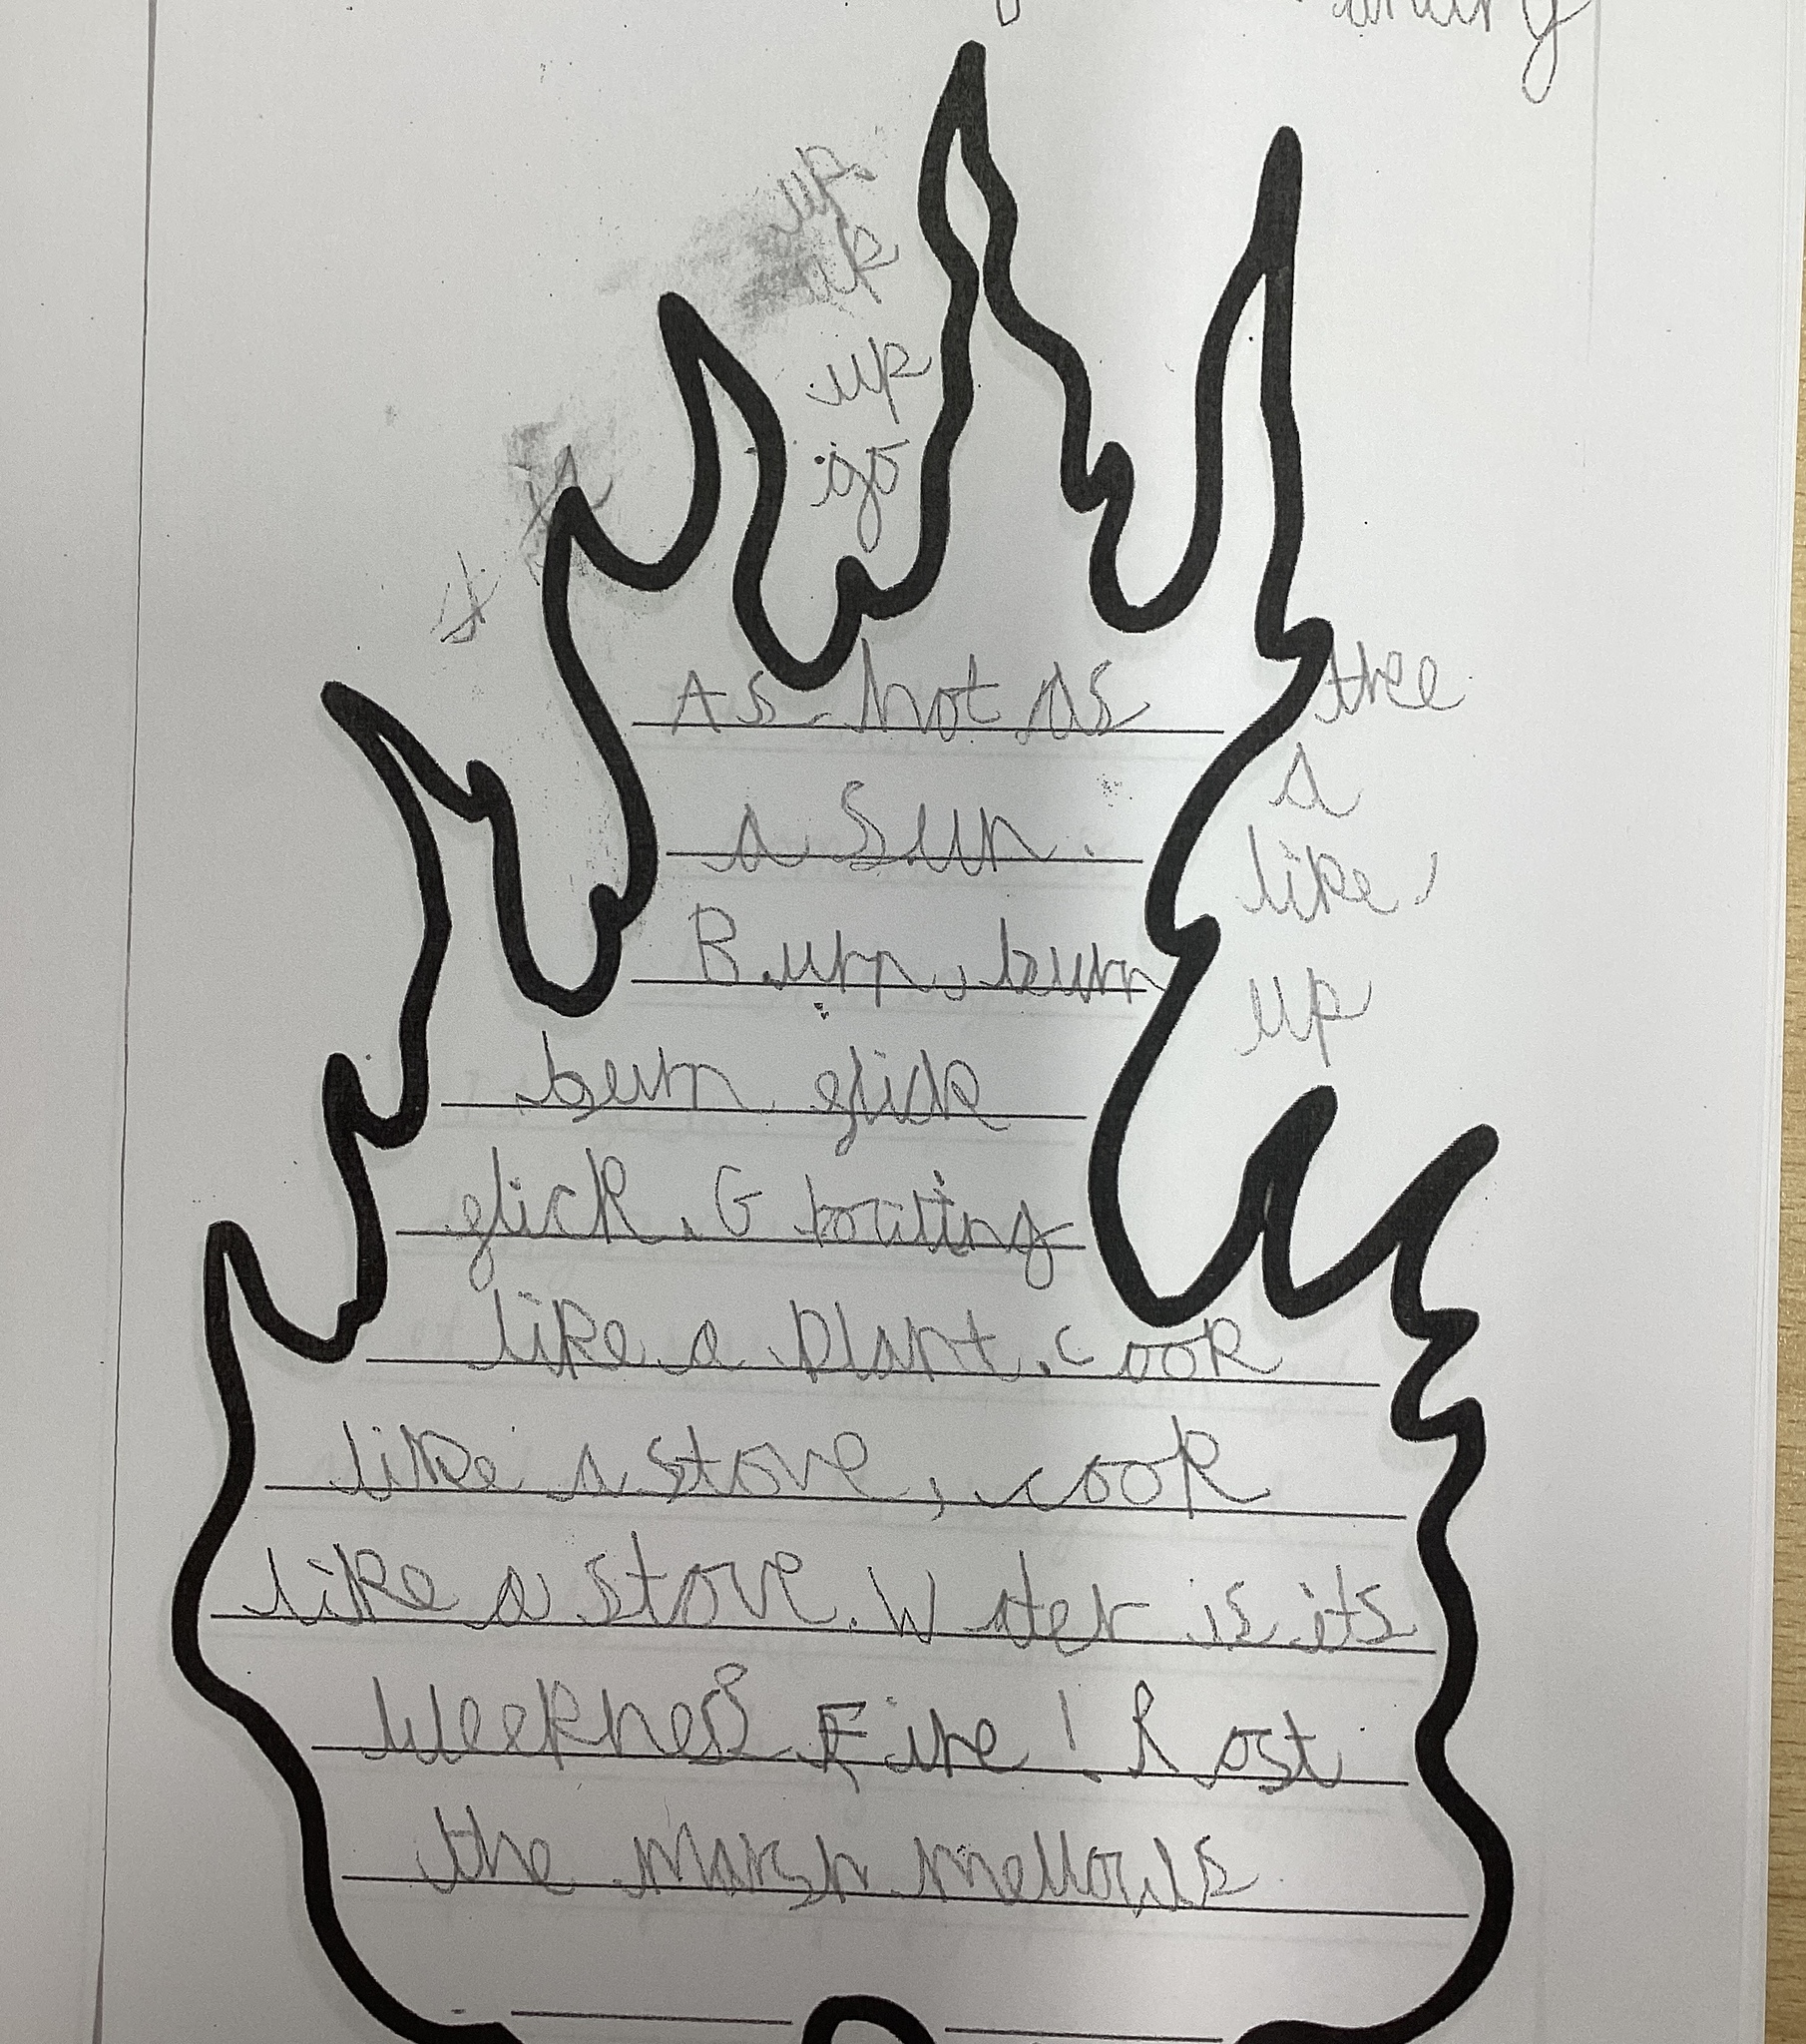 up.
up
up
go
As hot as
a Sun.
Burn, burn
burn glick
glick. G rowing
like a plant. cook
like a stove, cook
like a stove. Water is its
Weekness Fire! Rost
the marsh mellows
tree
a
like
up